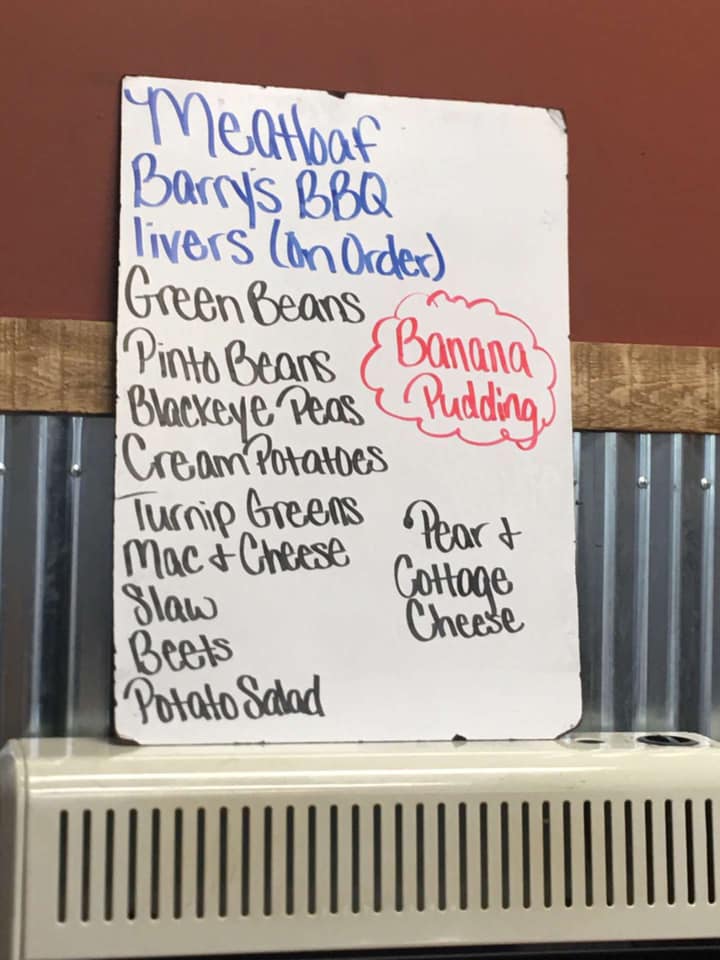 Meatloaf
Barry's BBQ
livers (On Order)
Green Beans
Pinto Beans
Blackeye Peas
Cream Potatoes
Turnip Greens
Mac + Cheese
Slaw
Beets
Potato Salad
Banana
Pudding
Pear +
Cottage
Cheese